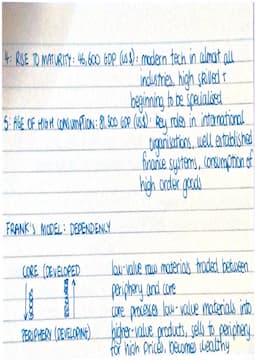 4: RISE TO MATURITY: 46,600 GDP (US$): modern tech in almost all
industries, high skilled +
beginning to be specialised
5: AGE OF HIGH CONSUMPTION: GDP (US$): key roles in international
organisations, well established
finance systems, consumption of
high order goods
FRANK'S MODEL: DEPENDENCY
CORE (DEVELOPED)
PERIPHERY (DEVELOPING)
low-value raw materials traded between
periphery and core
core processes low-value materials into
higher-value products, sells to periphery
for high prices, becomes wealthy